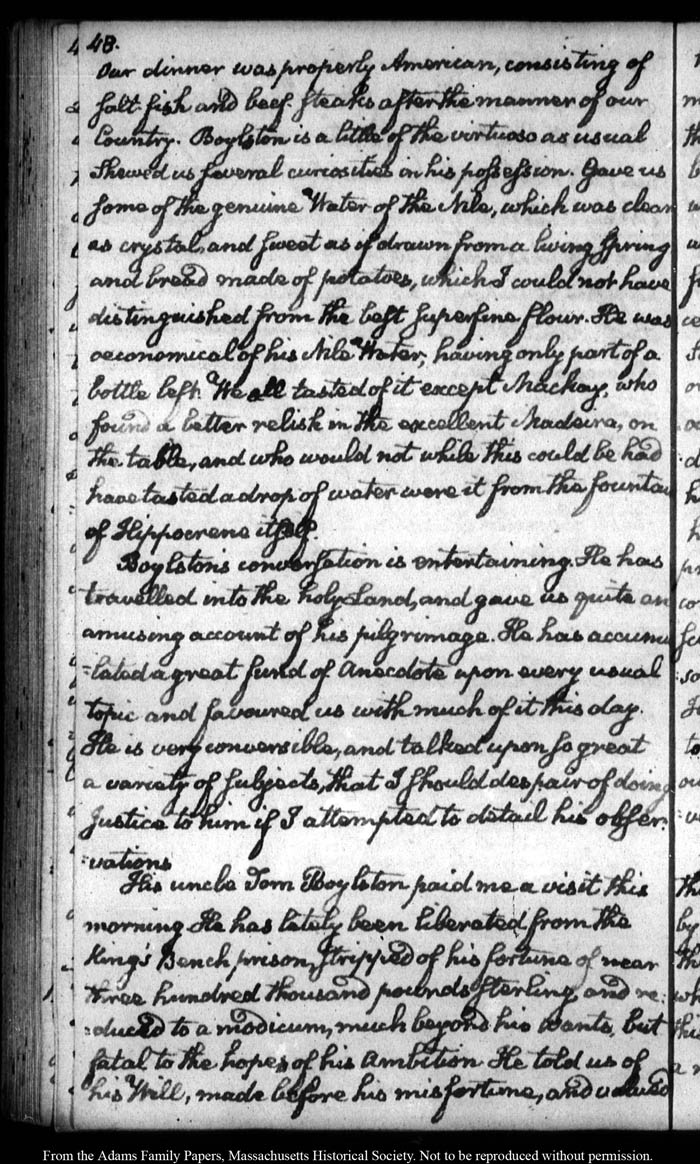 48.
Our dinner was properly American, consisting of
salt-fish and beef-steaks after the manner of our
Country. Boylston is a little of the virtuoso as usual
Shewed us several curiosities in his possession. Gave us
some of the genuine Water of the Nile, which was clear
as crystal, and sweet as if drawn from a living Spring
and bread made of potatoes, which I could not have
distinguished from the best superfine flour. He was
oeconomical of his Nile Water, having only part of a
bottle left. We all tasted of it except Mackay, who
found a better relish in the excellent Madeira, on
the table, and who would not while this could be had
have tasted a drop of water were it from the fountain
of Hippocrene itself.
Boylston's conversation is entertaining. He has
travelled into the holy Land, and gave us quite an
amusing account of his pilgrimage. He has accumu
=lated a great fund of Anecdote upon every usual
topic and favoured us with much of it this day.
He is very conversible, and talked upon so great
a variety of subjects, that I should despair of doing
Justice to him if I attempted to detail his obser=
=vations
His uncle Tom Boylston paid me a visit this
morning. He has lately been liberated from the
King's Bench prison, stripped of his fortune of near
three hundred thousand pounds sterling, and re=
=duced to a modicum, much beyond his wants, but
fatal to the hopes of his Ambition. He told us of
his Will, made before his misfortune, and valued
From the Adams Family Papers, Massachusetts Historical Society. Not to be reproduced without permission.